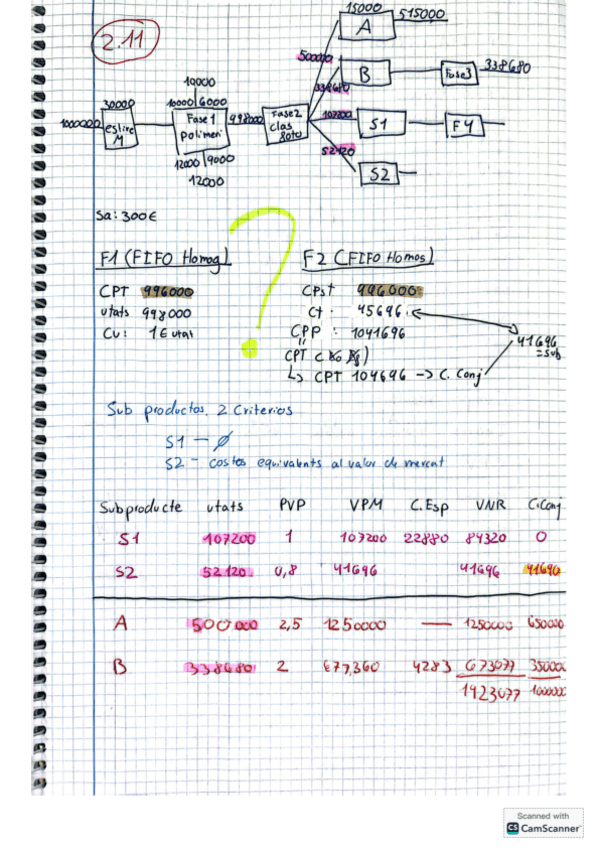 2.11
15000
A
515000
500000
B
Fase3
338680
338680
10000
30000
10000 6000
1000000
estire
M
Fase 1
polimeri
998000
Fase2
clas
107200
S1
F4
12000 9000
12000
52120
S2
Sa: 300€
F1 (FIFO Homog)
F2 (FIFO Homog)
?
CPT 996000
CPst 996000
utats 998000
Ct. 45696
Cu: 1€ utat
CPP : 1041696
41696
= sub
CPT
↳ CPT 104696 -> C. Conj
Sub productos. 2 Criterios
S1 - Ø
S2 - costos equivalents al valor de mercat
Subproducte utats PVP VPM C.Esp VNR C.Conj
S1 107200 1 107200 22880 84320 0
S2 52120 0,8 41696 41696 41696
A 500000 2,5 1250000 — 1250000 650000
B 338680 2 677360 4283 673077 350000
1923077 1000000
Scanned with
CS CamScanner